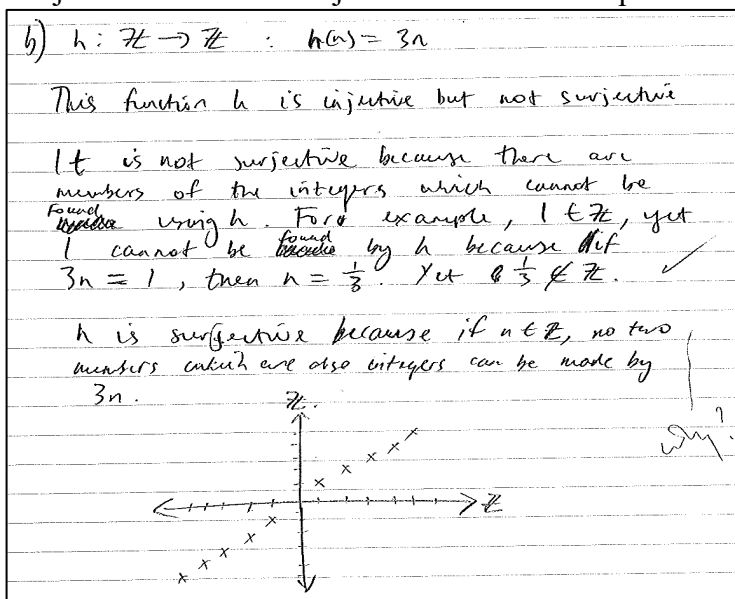 b) h: ℤ → ℤ : h(n) = 3n
This function h is injective but not surjective
It is not surjective because there are
members of the integers which cannot be
found using h. For example, 1 ∈ ℤ, yet
1 cannot be found by h because if
3n = 1, then n = 1/3. Yet 1/3 ∉ ℤ. ✓
h is surjective because if n ∈ ℤ, no two
members which are also integers can be made by
3n.
why?
ℤ.
ℤ